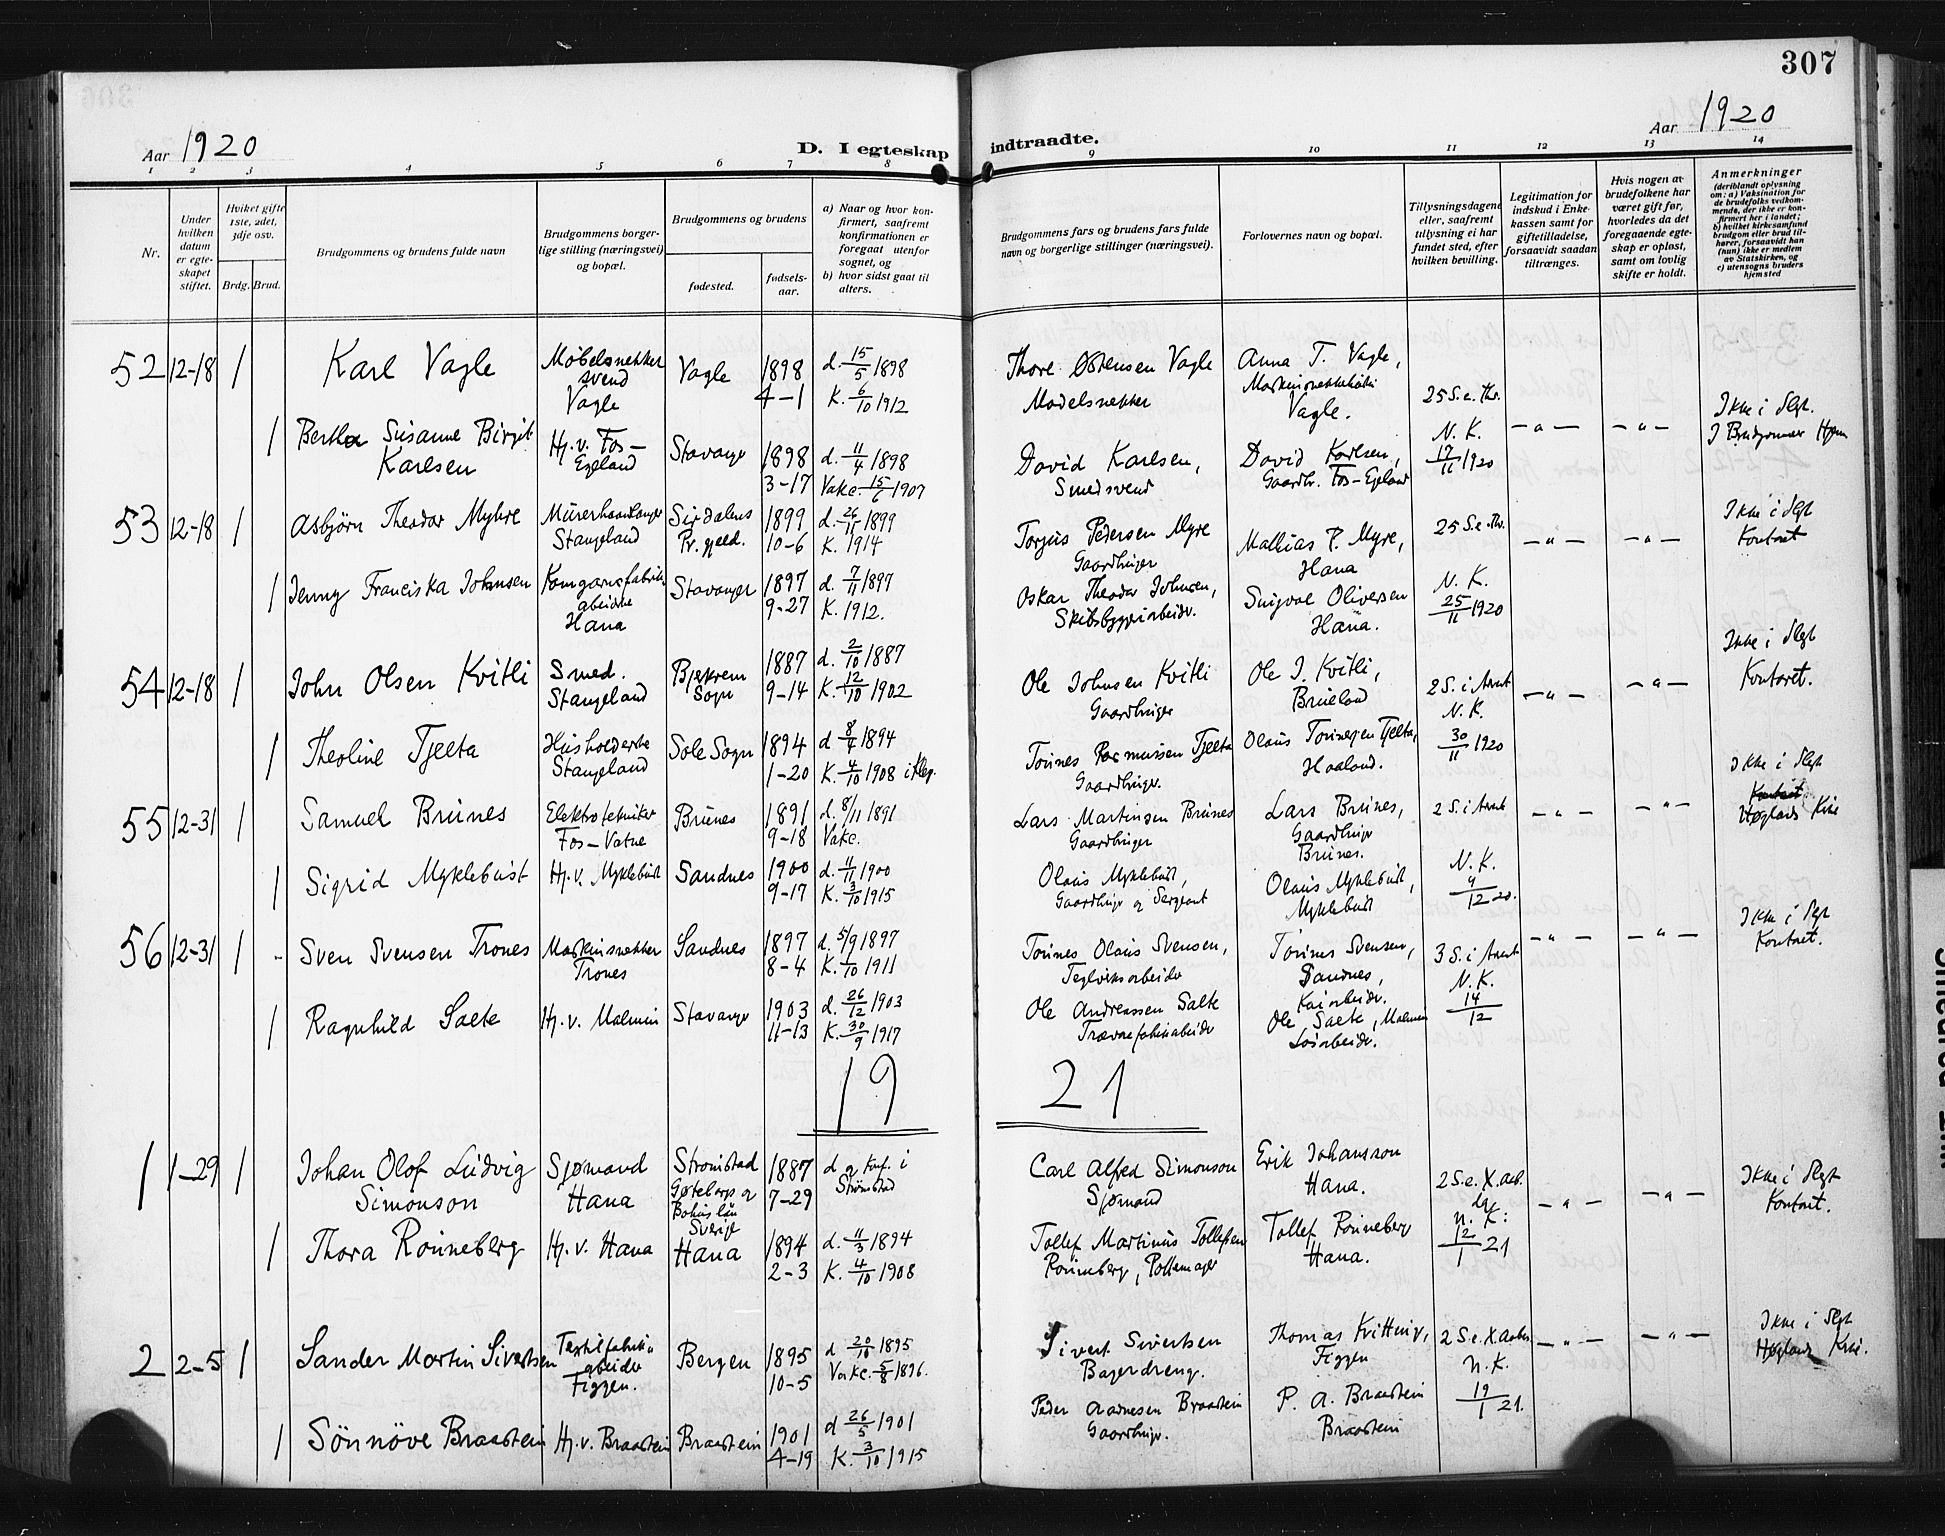 307
Aar 1920
D. I egteskap indtraadte.
Aar 1920
1 2 3 4 5 6 7 8 9 10 11 12 13 14
Nr.
Under hvilken datum er egteskapet stiftet.
Hviket gifte 1ste, 2det, 3dje osv.
Brdg. Brud.
Brudgommens og brudens fulde navn
Brudgommens borgerlige stilling (næringsvei) og bopæl.
Brudgommens og brudens
fødested.
fødselsaar.
a) Naar og hvor konfirmert, saafremt konfirmationen er foregaat utenfor sognet, og
b) hvor sidst gaat til alters.
Brudgommens fars og brudens fars fulde navn og borgerlige stillinger (næringsvei).
Forlovernes navn og bopæl.
Tillysningsdagene eller, saafremt tillysning ei har fundet sted, efter hvilken bevilling.
Legitimation for indskud i Enkekassen samt for giftetilladelse, forsaavidt saadan tiltrænges.
Hvis nogen av brudefolkene har været gift før, hvorledes da det foregaaende egteskap er opløst, samt om lovlig skifte er holdt.
Anmerkninger
(deriblandt oplysning om: a) Vaksination for de brudefolks vedkommende, der ikke er konfirmert her i landet; b) hvilket kirkesamfund brudgom eller brud tilhører, forsaavidt han (hun) ikke er medlem av Statskirken, og c) utensogns bruders hjemsted
52 12-18 1 Karl Vagle Møbelsnekker svend Vagle Vagle 1898 4-1 d. 15/5 1898 K. 6/10 1912 Thore Østensen Vagle Anna T. Vagle, Vagle. 25 S. e. Thr. N. K. 17/11 1920 -"- -"- Ikke i Slegt. I Brudgommens Hjem
1 Bertha Susanne Birgit Karlsen Hj. v. Fos-Egeland Stavanger 1898 3-17 d. 11/4 1898 Vakc. 15/6 1907 David Karlsen, Smedsvend David Karlsen, Gaardbr. Fos-Egeland
53 12-18 1 Asbjørn Theodor Myhre Murerhaandlanger Stangeland Sirdalens Pr. gjeld. 1899 10-6 d. 26/11 1899 K. 1914 Torjus Pedersen Myre Gaardbruger Mathias P. Myre, Hana 25 S. e. Thr. N. K. 25/11 1920 -"- -"- Ikke i Slegt Kontoret
1 Jenny Franciska Johnsen Kamgarnsfabrik arbeiderske Hana Stavanger 1897 9-27 d. 7/11 1897 K. 1912. Oskar Theodor Johnsen, Skibsbyggeriarbeider. Sigval Oliversen Hana.
54 12-18 1 John Olsen Kvitli Smed. Stangeland Bjerkrem Sogn 1887 9-14 d. 2/10 1887 K. 12/10 1902 Ole Johnsen Kvitli Gaardbruger Ole J. Kvitli, Brueland 2 S. i Advent N. K. 30/11 1920 -"- -"- Ikke i Slegt Kontoret.
1 Theoline Tjelta Husholderske Stangeland Sole Sogn 1894 1-20 d 8/4 1894 K. 4/10 1908 i Klep. Tønnes Rasmussen Tjelta Gaardbruger. Olaus Tønnesen Tjelta, Haaland.
55 12-31 1 Samuel Brunes Elektrotekniker Fos-Vatne Brunes 1891 9-18 d. 8/11 1891 Vakc. Lars Martinsen Brunes Gaardbruger Lars Brunes, Gaardbruger Brunes. 2 S. i Advent N. K. 9/12 20. -"- -"- Ikke i Slegt Høglands Kirke
1 Sigrid Myklebust Hj. v. Myklebust Sandnes 1900 9-17 d. 11/11 1900 K. 3/10 1915 Olaus Myklebust, Gaardbruger og Sergeant Olaus Myklebust, Myklebust
56 12-31 1 - Sven Svensen Trones Maskinsnekker Trones Sandnes 1897 8-4 d. 5/9 1897 K. 1/10 1911 Tønnes Olaus Svensen, Teglverksarbeider Tønnes Svensen, Sandnes, Kaiarbeider. 3 S. i Advent N. K. 14/12 -"- -"- Ikke i Slegt Kontoret.
1 Ragnhild Salte Hj. v. Malmin Stavanger 1903 11-13 d. 26/12 1903 K. 30/9 1917 Ole Andreassen Salte Trævarefabrikarbeider Ole Salte, Malmin Løsarbeider.
19 21
1 1-29 1 Johan Olof Ludvig Simonson Sjømand Hana Strømstad Gøteborgs og Bohus län Sverige 1887 7-29 d og Konf. i Strømstad Carl Alfred Simonson Sjømand Erik Johansson Hana. 2 S. e. N. K. 12/1 21 -"- -"- Ikke i Slegt Kontoret.
1 Thora Rønneberg Hj. v. Hana Hana 1894 2-3 d. 11/3 1894 K. 4/10 1908 Tollef Martinus Tollefsen Rønneberg, Pottemager Tollef Rønneberg Hana.
2 2-5 1 Sander Martin Sivertsen Textilfabrikarbeider Figgen. Bergen 1895 10-5 d 20/10 1895 Vakc. 5/8 1896. Sivert Sivertsen Bagerdreng. Thomas Kvitting, Figgen 2 S. e. N. K. 19/1 21. -"- -"- Ikke i Slegt Høglands Kirke.
1 Sönnöve Braastein Hj. v. Braastein Braastein 1901 4-19 d 26/5 1901 K. 3/10 1915 Peder Aadnesen Braastein Gaardbruger. P. A. Braastein Braastein